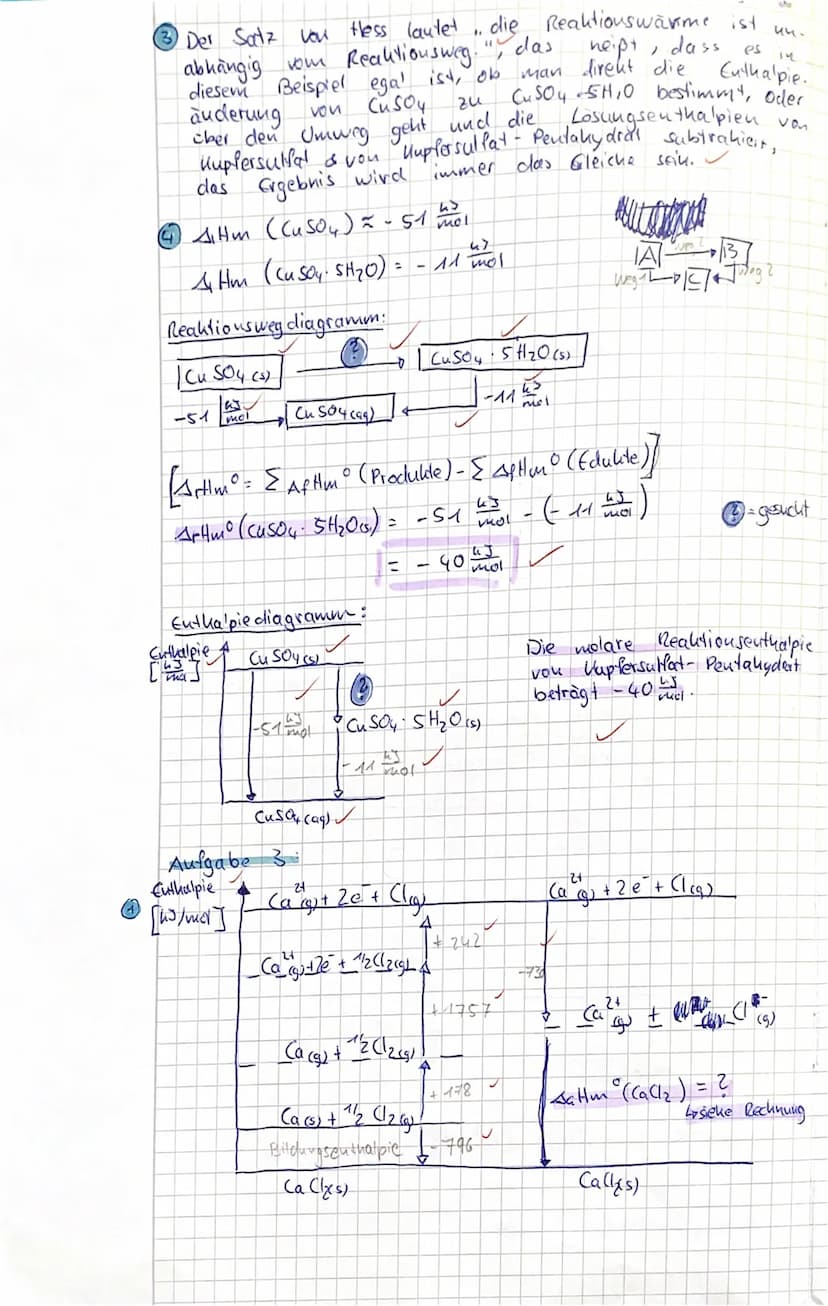 ③ Der Satz von Hess lautet „die Reaktionswärme ist un-
abhängig vom Reaktionsweg.", das heißt, dass es in
diesem Beispiel egal ist, ob man direkt die Enthalpie-
änderung von CuSO₄ zu CuSO₄·5H₂O bestimmt, oder
über den Umweg geht und die Lösungsenthalpien von
Kupfersulfat & von Kupfersulfat-Pentahydrat subtrahiert,
das Ergebnis wird immer das Gleiche sein.
④ ΔₗHm (CuSO₄) ≈ -51 kJ/mol
ΔₗHm (CuSO₄·5H₂O) = -11 kJ/mol
A B
Weg 1 C Weg 2
Reaktionswegdiagramm:
CuSO₄(s) ? CuSO₄·5H₂O(s)
-51 kJ/mol CuSO₄(aq) -11 kJ/mol
[ΔrHm⁰ = Σ ΔfHm⁰ (Produkte) - Σ ΔfHm⁰ (Edukte)]
ΔrHm⁰ (CuSO₄·5H₂O(s)) = -51 kJ/mol - (-11 kJ/mol)
? = gesucht
= -40 kJ/mol
Enthalpiediagramm:
Enthalpie
[kJ/mol]
CuSO₄(s)
?
-51 kJ/mol
CuSO₄·5H₂O(s)
-11 kJ/mol
CuSO₄(aq)
Die molare Reaktionsenthalpie
von Kupfersulfat-Pentahydrat
beträgt -40 kJ/mol.
Aufgabe 3:
① Enthalpie
[kJ/mol]
Ca²⁺(g) + 2e⁻ + Cl(g) Ca²⁺(g) + 2e⁻ + Cl(g)
+ 242
Ca²⁺(g) + 2e⁻ + 1/2Cl₂(g)
+ 1757
Ca²⁺(g) + Cl⁻(g)
Ca(g) + 1/2Cl₂(g)
+ 178
ΔGHm⁰ (CaCl₂) = ?
↳ siehe Rechnung
Ca(s) + 1/2 Cl₂(g)
Bildungsenthalpie - 796
CaCl₂(s) CaCl₂(s)